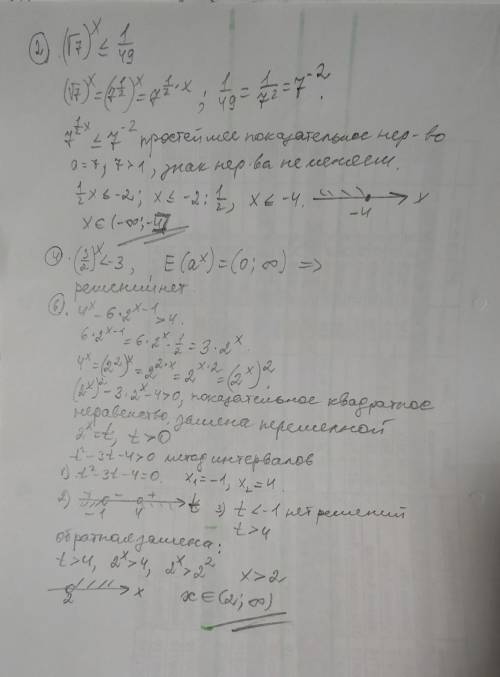 2) (√7)^x ≤ 1/49
(√7)^x = (7^(1/2))^x = 7^(1/2·x) ; 1/49 = 1/7² = 7^-2.
7^(1/2x) ≤ 7^-2 простейшее показательное нер-во
a=7, 7>1, знак нер-ва не меняем.
1/2x ≤ -2; x ≤ -2 : 1/2, x ≤ -4. -4 x
x ∈ (-∞; -4]
4) (3/2)^x < -3, E(a^x) = (0; ∞) =>
решений нет.
6) 4^x - 6·2^(x-1) > 4.
6·2^(x-1) = 6·2^x · 1/2 = 3·2^x.
4^x = (2²)^x = 2^(2·x) = 2^(x·2) = (2^x)².
(2^x)² - 3·2^x - 4 > 0, показательное квадратное
неравенство, замена переменной
2^x = t, t > 0
t² - 3t - 4 > 0 метод интервалов
1) t² - 3t - 4 = 0. x₁ = -1, x₂ = 4.
2) + - + -1 4 t 3) t < -1 нет решений
t > 4
обратная замена:
t > 4, 2^x > 4, 2^x > 2² x > 2
2 x x ∈ (2; ∞)